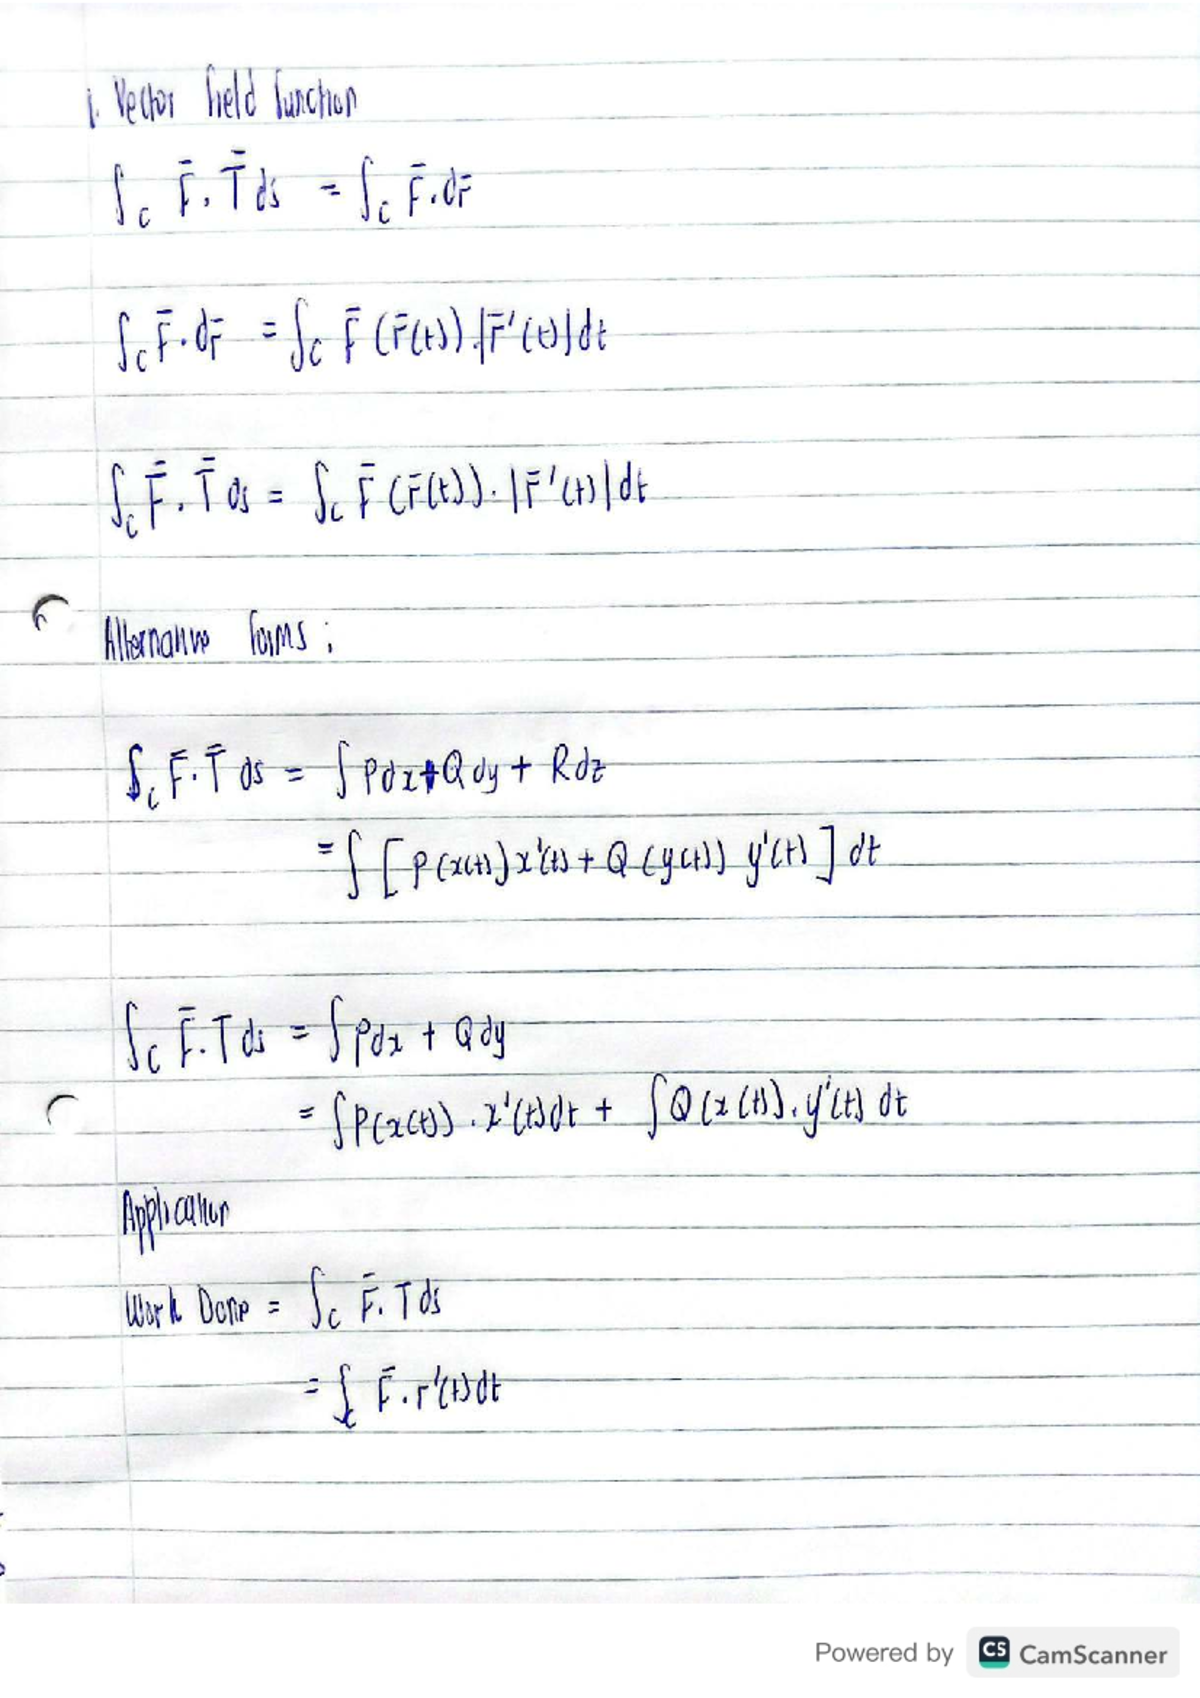 1. Vector field function
∫_C F̄ . T̄ ds = ∫_C F̄ . dr̄
∫_C F̄ . dr̄ = ∫_C F̄ (r̄(t)) . |r̄'(t)| dt
∫_C F̄ . T̄ ds = ∫_C F̄ (r̄(t)) . |r̄'(t)| dt
Alternative forms :
∫_C F̄ . T̄ ds = ∫ Pdx + Qdy + Rdz
= ∫ [ P(x(t)) x'(t) + Q (y(t)) y'(t) ] dt
∫_C F̄ . T ds = ∫ Pdx + Qdy
= ∫ P(x(t)) . x'(t) dt + ∫ Q(x(t)) . y'(t) dt
Application
Work Done = ∫_C F̄ . T ds
= ∫_C F̄ . r'(t) dt
Powered by CS CamScanner